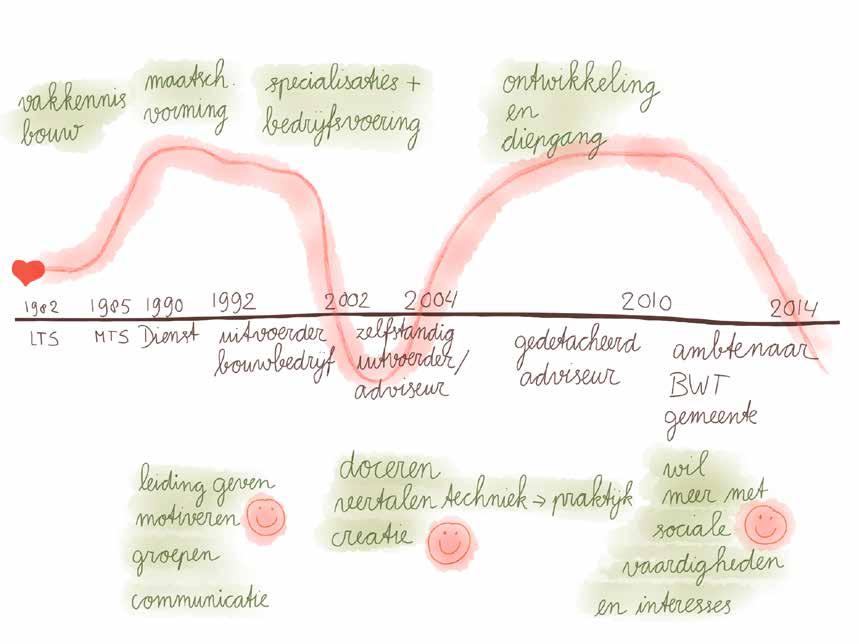 vakkennis
bouw
maatsch.
vorming
specialisaties +
bedrijfsvoering
ontwikkeling
en
diepgang
1982 1985 1990 1992 2002 2004 2010 2014
LTS MTS Dienst
uitvoerder
bouwbedrijf
zelfstandig
uitvoerder/
adviseur
gedetacheerd
adviseur
ambtenaar
BWT
gemeente
leiding geven
motiveren
groepen
communicatie
doceren
veertalen techniek → praktijk
creatie
wil
meer met
sociale
vaardigheden
en interesses